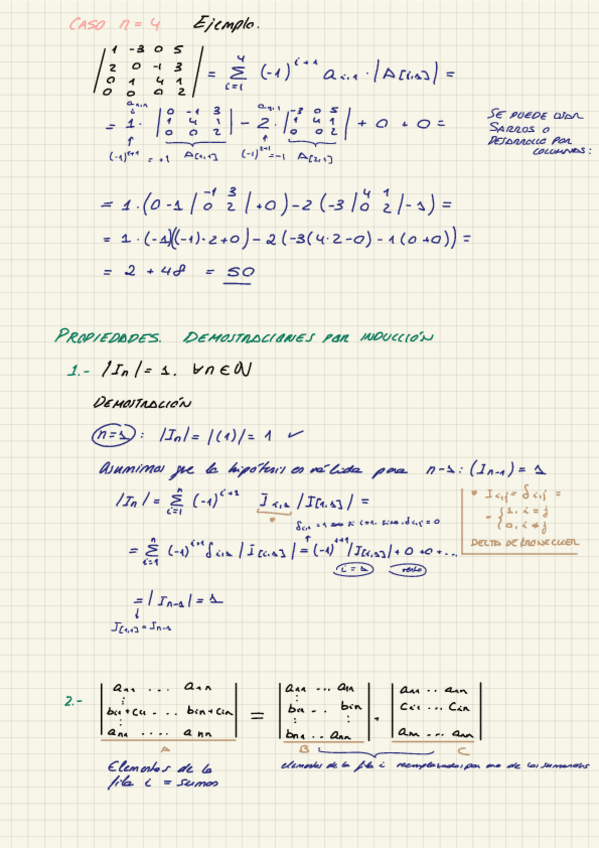 CASO n = 4   Ejemplo.
| 1 -3 0 5 |
| 2 0 -1 3 |
| 0 1 4 1 |
| 0 0 0 2 | = Σ_{i=1}^{4} (-1)^{i+1} a_{i,1} · |A[i,1]| =
= 1 · | 0 -1 3 ; 1 4 1 ; 0 0 2 | - 2 · | -3 0 5 ; 1 4 1 ; 0 0 2 | + 0 + 0 =
(-1)^{1+1} = +1   A[1,1]   (-1)^{2+1} = -1   A[2,1]
SE PUEDE USAR
SARROS O
DESARROLLO POR
COLUMNAS:
= 1 · (0 - 1 | -1 3 ; 0 2 | + 0) - 2 (-3 | 4 1 ; 0 2 | - 1) =
= 1 · (-1)((-1)·2 + 0) - 2(-3(4·2-0) - 1(0+0)) =
= 2 + 48 = 50
PROPIEDADES. DEMOSTRACIONES POR INDUCCIÓN
1.- |In| = 1. ∀n ∈ ℕ
DEMOSTRACIÓN
n=1 : |In| = |(1)| = 1 ✓
Asumimos que la hipótesis es válida para n-1: (In-1) = 1
|In| = Σ_{i=1}^{n} (-1)^{i+1} I_{i,1} |I[i,1]| =
* I_{i,j} = δ_{i,j} =
= { 1, i = j
{ 0, i ≠ j
DELTA DE KRONECKER
= Σ_{i=1}^{n} (-1)^{i+1} δ_{i,1} |I[i,1]| = (-1)^{1+1} |I[1,1]| + 0 + 0 + ...
i = 1   resto
= |In-1| = 1
I[1,1] = In-1
2.- | a11 ... a1n ; bi1+ci1 ... bin+cin ; an1 ... ann | = | a11 ... a1n ; bi1 .. bin ; bn1 ... ann | · | a11 .. a1n ; ci1 ... cin ; an1 ... ann |
A   B   C
Elementos de la
fila i = sumas
elementos de la fila i reemplazados por uno de los sumandos